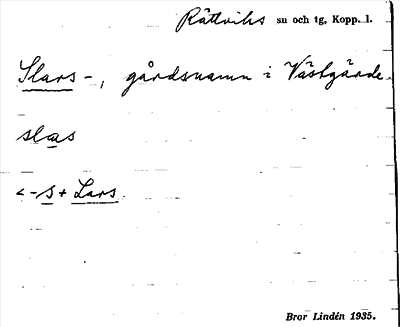 Rättviks sn och tg, Kopp. l.
Slars-, gårdsnamn i Västgärde.
slas
<-s + Lars.
Bror Lindén 1935.